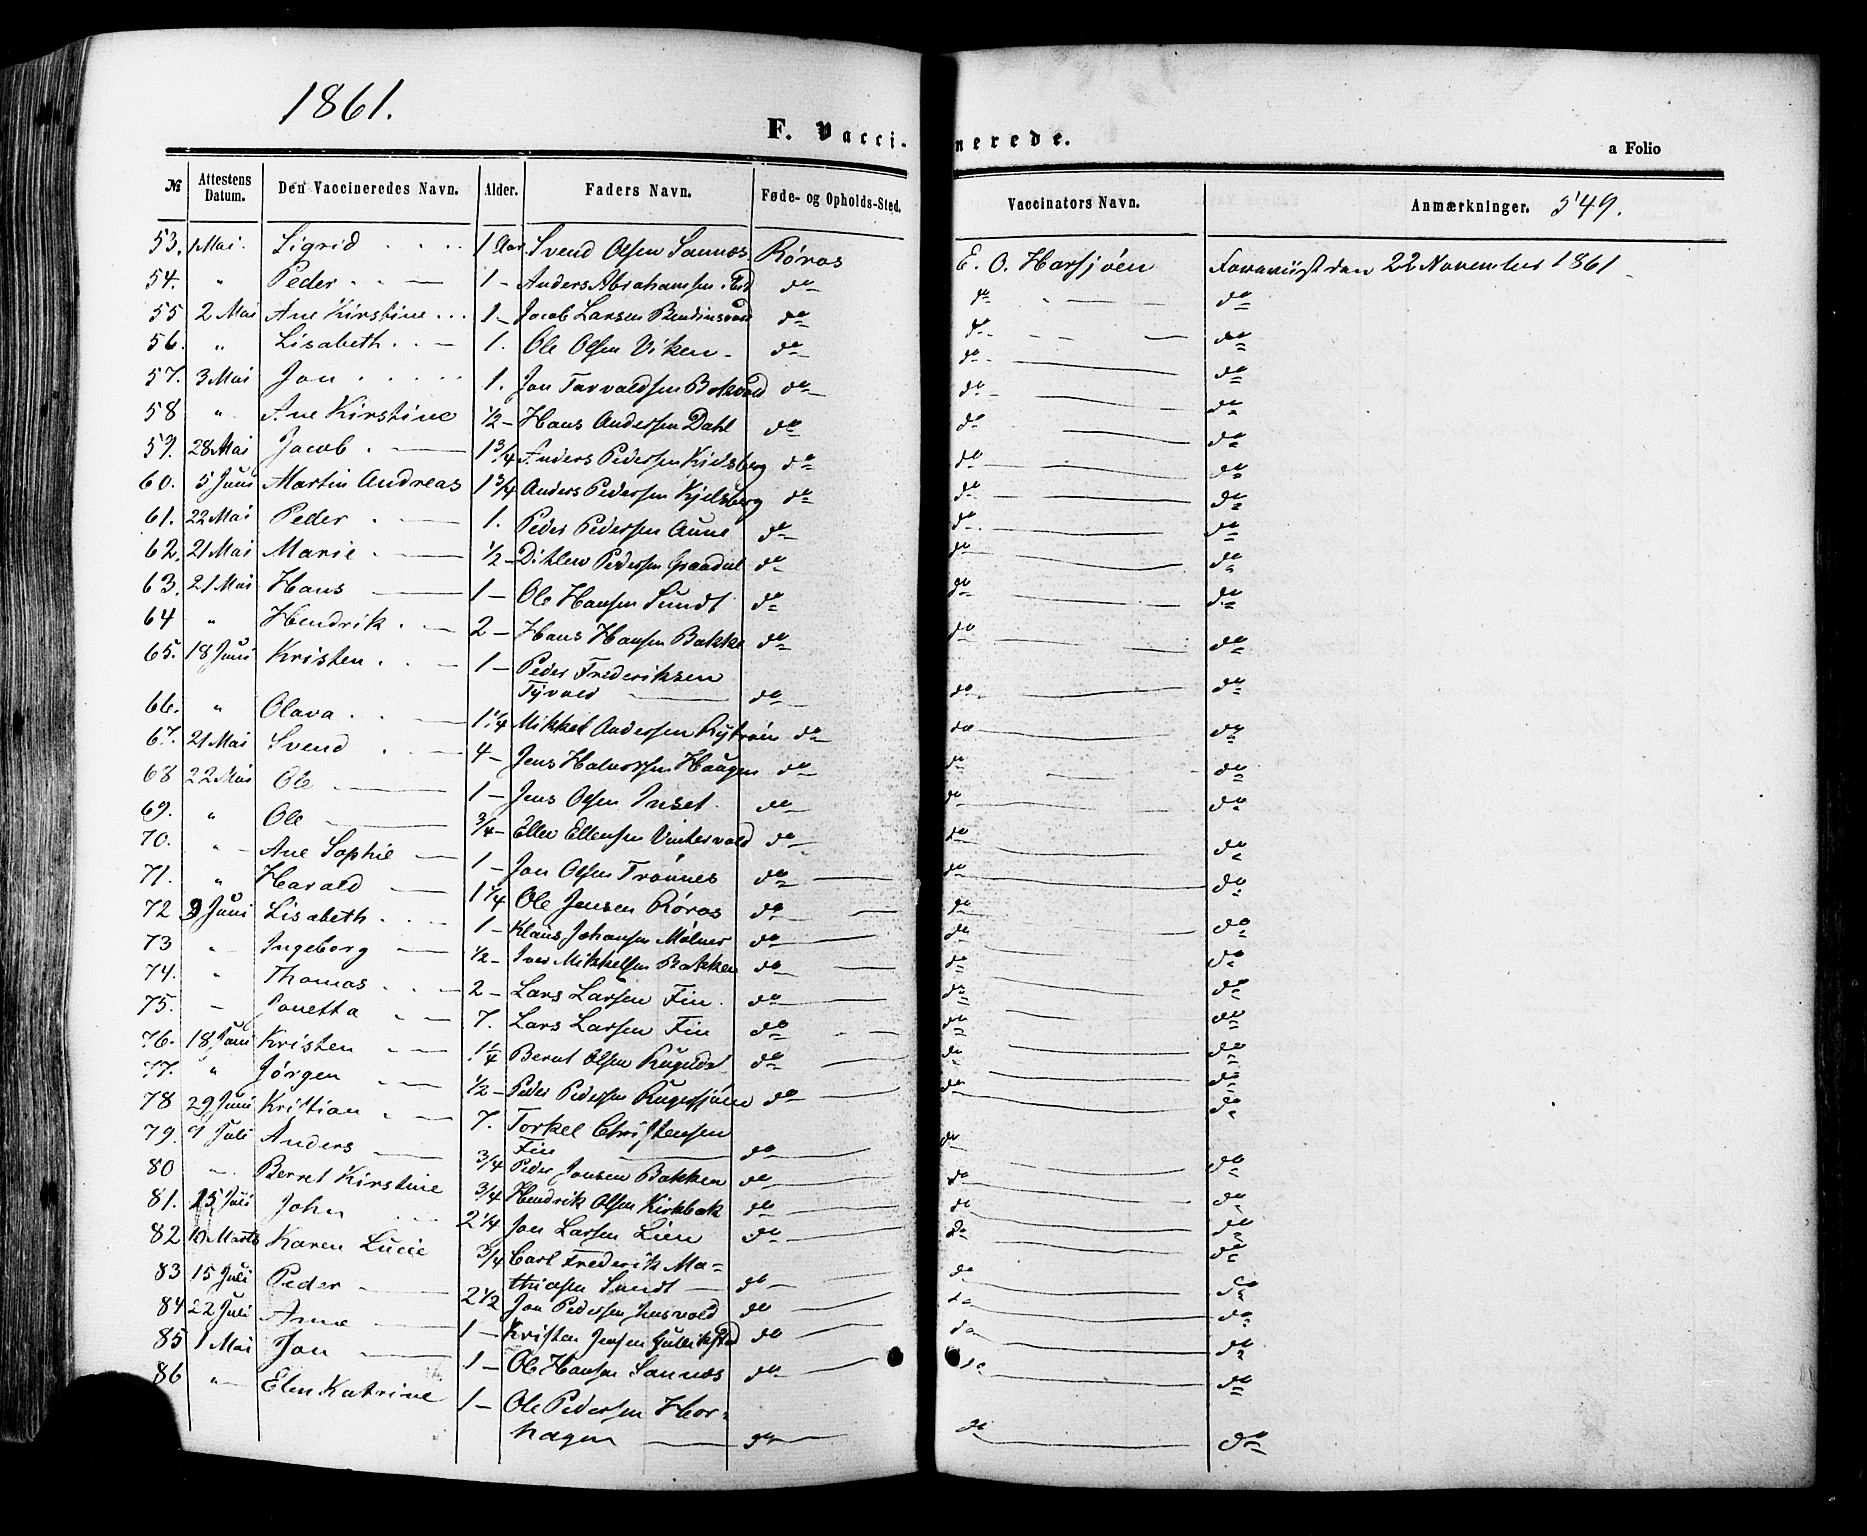 1861.
F. Vacci-nerede.
a Folio
549.
№ Attestens Datum. Den Vaccineredes Navn. Alder. Faders Navn. Føde- og Opholds-Sted. Vaccinators Navn. Anmærkninger.
53. 1 Mai. Sigrid 1 Aar Svend Olsen Sannæs Røros E. O. Harsjøen Foreviist den 22 November 1861
54. " Peder 1 - Anders Abrahamsen do do do
55 2 Mai Ane Kirstine 1 - Jacob Larsen do do do
56. " Lisabeth 1. Ole Olsen Viken do do do
57. 3 Mai Jon 1. Jon Tarvaldsen do do do
58 " Ane Kirstine 1/2 - Hans Andersen Dahl do do do
59. 28 Mai Jacob 1 3/4 Anders Pedersen Kjelsberg do do do
60. 5 Juni Martin Andreas 1 3/4 Anders Pedersen Kjelsberg do do do
61. 22 Mai Peder 1. Peder Pedersen Aune do do do
62. 21 Mai Marie 1/2 - Ditlew Pedersen do do do
63. 21 Mai Hans 1 - Ole Hansen Sundt do do do
64 " Hendrik 2 - Hans Hansen Bakke do do do
65. 18 Juni Kristen 1 - Peder Frederiksen
Tyvold do do do
66. " Olava 1 1/4 Mikkel Andersen Rytrøen do do do
67. 21 Mai Svend 4 - Jens Halvorsen Haugen do do do
68 22 Mai Ole 1 - Jens Olsen Inset. do do do
69. " Ole 3/4 - Ellev Ellensen Vintervold do do do
70. " Ane Sophie 1 - Jon Olsen Trønnes do do do
71. " Harald 1 1/4 Ole Jensen Røros do do do
72 9 Juni Lisabeth 1 - Klaus Johansen Mølner do do do
73 " Ingeborg 1/2 - Iver Mikkelsen Bakken do do do
74. " Thomas 2 - Lars Larsen Fin. do do do
75. - Jonetta 7. Lars Larsen Fin do do do
76. 18 Juni Kristen 1 1/4 Bernt Olsen Rugeldal do do do
77. " Jørgen 1/2 - Peder Pedersen Rugelsjøen do do do
78 29 Juni Kristian 7. Torkel Christensen
Fin do do do
79. 9 Juli Anders 3/4 Peder Jonsen Bakken do do do
80 " Berret Kirstine 3/4 Hendrik Olsen Kirkbak do do do
81. 15 Juli John 2 1/4 Jon Larsen Lien do do do
82 10 Marts Karen Lucie 3/4 Carl Frederik Ma-
thiasen Sundt do do do
83 15 Juli Peder 2 1/2 Jon Pedersen do do do
84 22 Juli Anne 1 - Kristen Jensen Gullikstad do do do
85 1 Mai Jon 1 - Ole Hansen Sannæs do do do
86 " Elen Katrine 1 - Ole Pedersen Hor-
hagen do do do